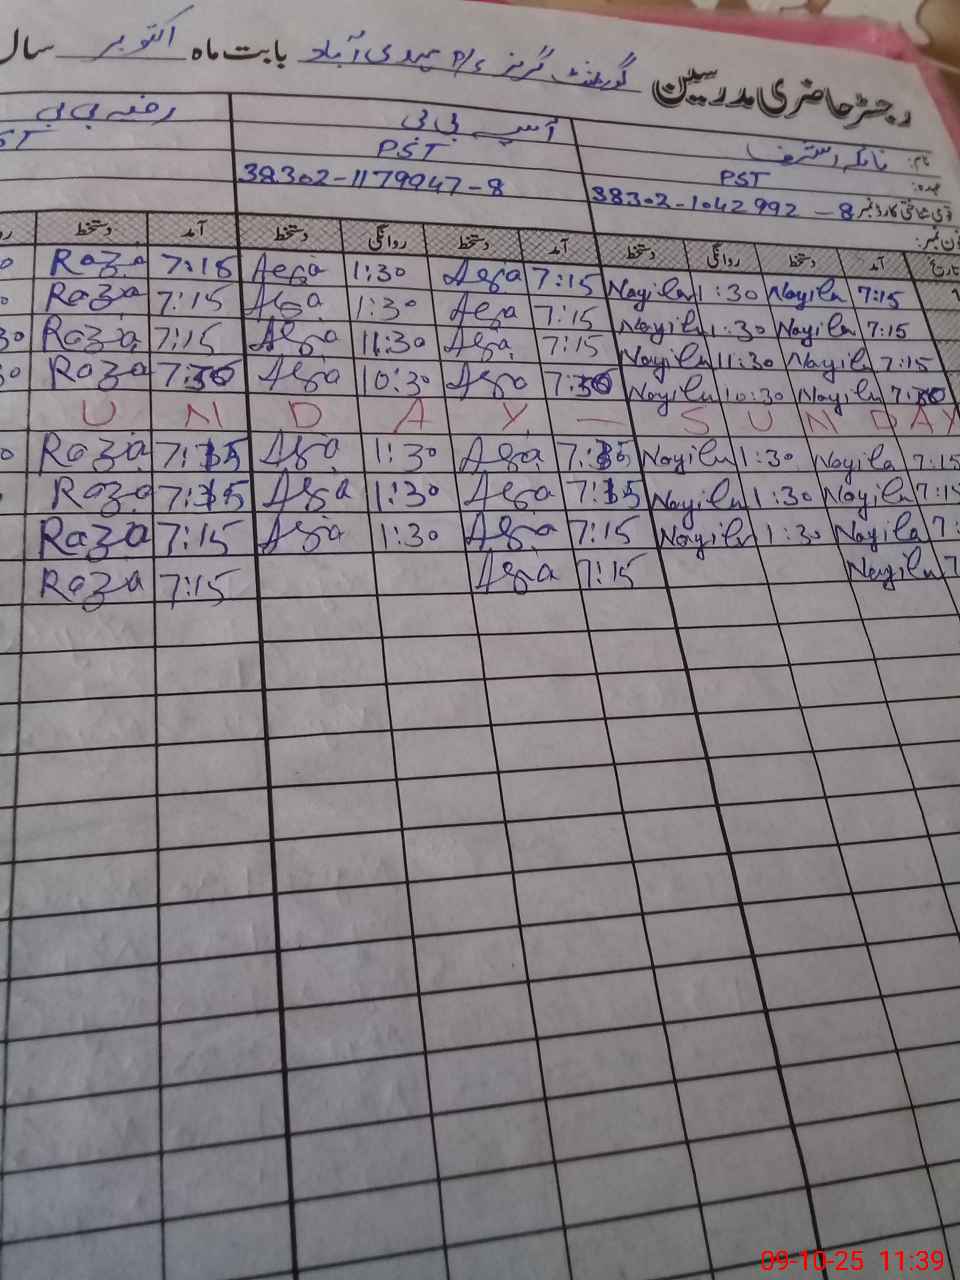 رجسٹر حاضری مدرسین گورنمنٹ گرلز P/s مہدی آباد بابت ماہ اکتوبر سال
نام: نائلہ اشرف آسیہ بی بی رضیہ بی بی
عہدہ: PST PST ST
قومی شناختی کارڈ نمبر 38302-1042992-8 38302-1179047-8
فون نمبر:
تاریخ آمد دستخط روانگی دستخط آمد دستخط روانگی دستخط آمد دستخط
7:15 Nayila 1:30 Nayila 7:15 Asya 1:30 Asya 7:15 Raza
7:15 Nayila 1:30 Nayila 7:15 Asya 1:30 Asya 7:15 Raza
7:15 Nayila 11:30 Nayila 7:15 Asya 11:30 Asya 7:15 Raza 30
7:30 Nayila 10:30 Nayila 7:30 Asya 10:30 Asya 7:30 Raza 30
U N D A Y — S U N D A Y
7:15 Nayila 1:30 Nayila 7:15 Asya 1:30 Asya 7:15 Raza
7:15 Nayila 1:30 Nayila 7:15 Asya 1:30 Asya 7:15 Raza
7: Nayila 1:30 Nayila 7:15 Asya 1:30 Asya 7:15 Raza
7 Nayila 7:15 Asya 7:15 Raza
09-10-25 11:39